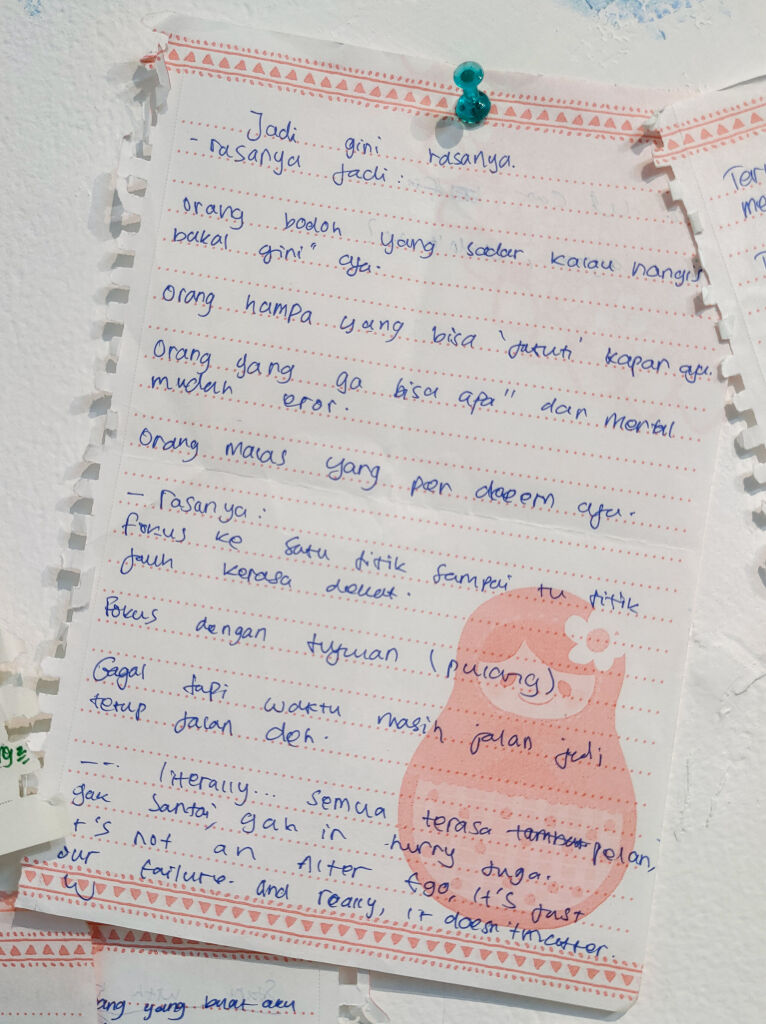 Jadi gini rasanya.
- rasanya jadi:
orang bodoh yang sadar kalau nangis
bakal gini" aja.
Orang hampa yang bisa 'jatuh' kapan aja.
Orang yang ga bisa apa" dan mental
mudah eror.
Orang malas yang pen daeem aja.
- rasanya:
fokus ke satu titik sampai tu titik
jauh kerasa dekat.
Fokus dengan tujuan (pulang)
Gagal tapi waktu masih jalan jadi
tetup jalan deh.
--- literally... semua terasa pelan,
gak santai, gak in hurry juga.
t's not an Alter Ego, it's just
our failure. and really, it doesn't matter.
Ter
me
T
ang yang buat aku